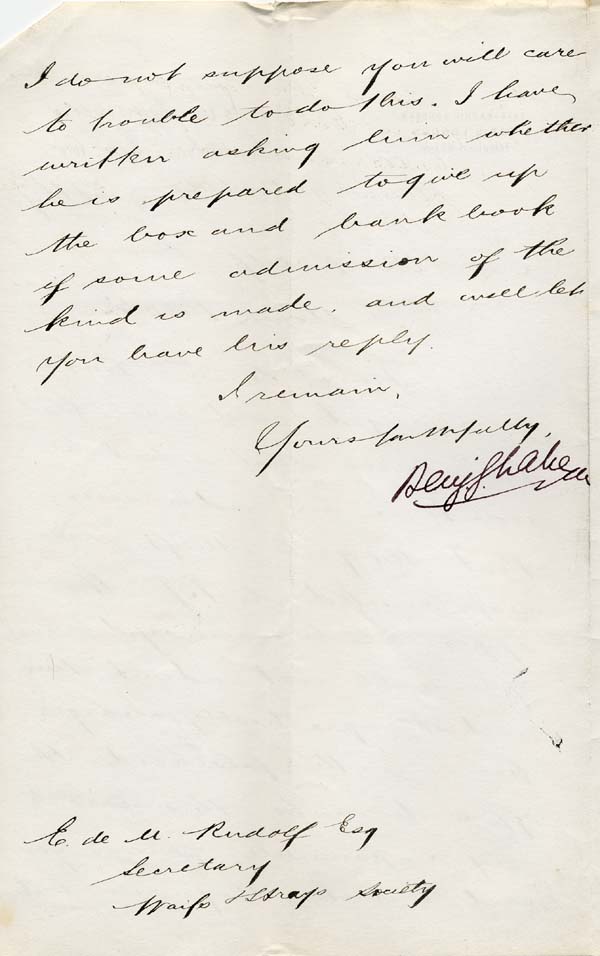 I do not suppose you will care
to trouble to do this. I have
written asking him whether
he is prepared to give up
the box and bank book
if some admission of the
kind is made, and will let
you have his reply.
I remain,
Yours faithfully,
Benj
E. de M. Rudolf Esq
Secretary
Waifs & Strays Society